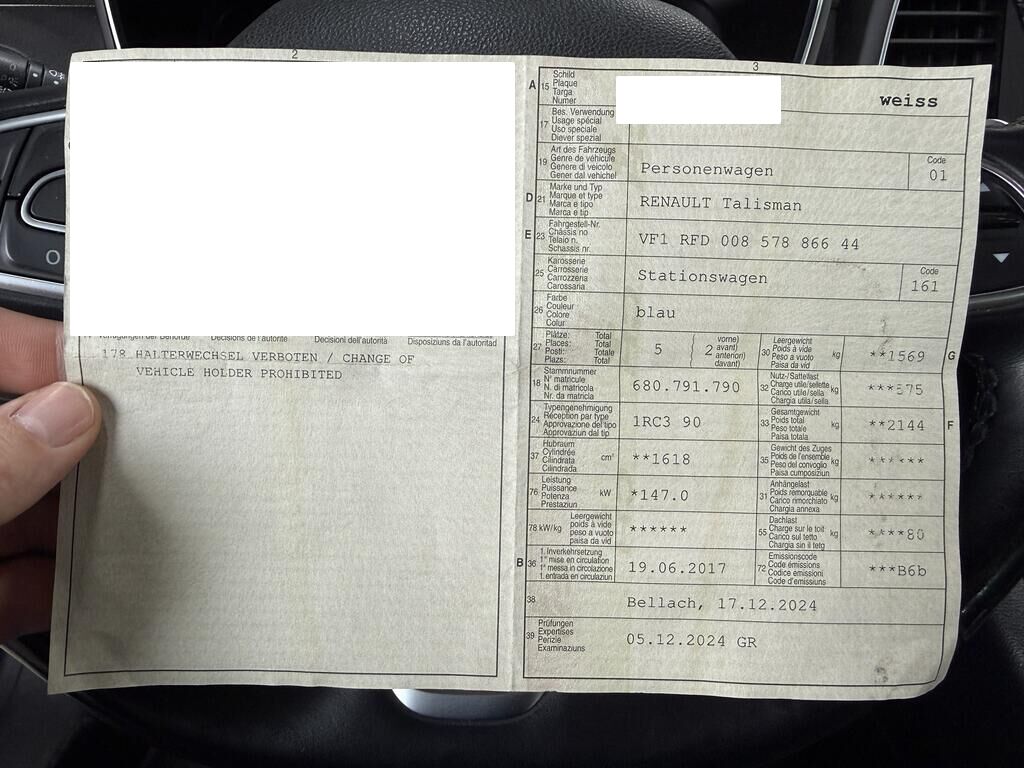 2
Decisiuns da l'autorità
Disposiziuns da l'autoritad
178 HALTERWECHSEL VERBOTEN / CHANGE OF
VEHICLE HOLDER PROHIBITED
3
A 15 Schild
Plaque
Targa
Numer
weiss
17 Bes. Verwendung
Usage spécial
Uso speciale
Diever spezial
19 Art des Fahrzeugs
Genre de véhicule
Genere di veicolo
Gener dal vehichel
Personenwagen
Code
01
D 21 Marke und Typ
Marque et type
Marca e tipo
Marca e tip
RENAULT Talisman
E 23 Fahrgestell-Nr.
Châssis no
Telaio n.
Schassis nr.
VF1 RFD 008 578 866 44
25 Karosserie
Carrosserie
Carrozzeria
Carossaria
Stationswagen
Code
161
26 Farbe
Couleur
Colore
Colur
blau
27 Plätze: Total
Places: Total
Posti: Totale
Plazs: Total
5
( 2 vorne)
avant)
anteriori)
davant)
30 Leergewicht
Poids à vide
Peso a vuoto
Paisa da vid
kg
**1569
G
18 Stammnummer
N° matricule
N. di matricola
Nr. da matricla
680.791.790
32 Nutz-/Sattellast
Charge utile/sellette
Carico utile/sella
Chargia utila/sella
kg
***575
24 Typengenehmigung
Réception par type
Approvazione del tipo
Approvaziun dal tip
1RC3 90
33 Gesamtgewicht
Poids total
Peso totale
Paisa totala
kg
**2144
F
37 Hubraum
Cylindrée
Cilindrata
Cilindrada
cm³
**1618
35 Gewicht des Zuges
Poids de l'ensemble
Peso del convoglio
Paisa cumposiziun
kg
******
76 Leistung
Puissance
Potenza
Prestaziun
kW
*147.0
31 Anhängelast
Poids remorquable
Carico rimorchiato
Chargia annexa
kg
******
78 kW/kg
Leergewicht
poids à vide
peso a vuoto
paisa da vid
******
55 Dachlast
Charge sur le toit
Carico sul tetto
Chargia sin il tetg
kg
****80
B 36 1. Inverkehrsetzung
1re mise en circulation
1a messa in circolazione
1. entrada en circulaziun
19.06.2017
72 Emissionscode
Code émissions
Codice emissioni
Code d'emissiuns
***B6b
38
Bellach, 17.12.2024
39 Prüfungen
Expertises
Perizie
Examinaziuns
05.12.2024 GR